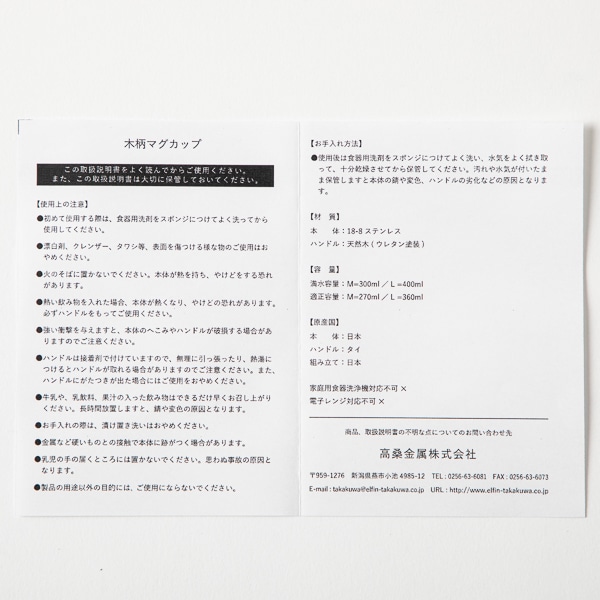 木柄マグカップ
この取扱説明書をよく読んでからご使用ください。
また、この取扱説明書は大切に保管しておいてください。
【使用上の注意】
●初めて使用する際は、食器用洗剤をスポンジにつけてよく洗ってから
使用してください。
●漂白剤、クレンザー、タワシ等、表面を傷つける様な物のご使用はお
やめください。
●火のそばに置かないでください。本体が熱を持ち、やけどをする恐れ
があります。
●熱い飲み物を入れた場合、本体が熱くなり、やけどの恐れがあります。
必ずハンドルをもってご使用ください。
●強い衝撃を与えますと、本体のへこみやハンドルが破損する場合があ
りますのでご注意ください。
●ハンドルは接着剤で付けていますので、無理に引っ張ったり、熱湯に
つけるとハンドルが取れる場合がありますのでご注意ください。また、
ハンドルにがたつきが出た場合にはご使用をおやめください。
●牛乳や、乳飲料、果汁の入った飲み物はできるだけ早くお召し上がり
ください。長時間放置しますと、錆や変色の原因となります。
●お手入れの際は、漬け置き洗いはおやめください。
●金属など硬いものとの接触で本体に跡がつく場合があります。
●乳児の手の届くところには置かないでください。思わぬ事故の原因と
なります。
●製品の用途以外の目的には、ご使用にならないでください。
【お手入れ方法】
●使用後は食器用洗剤をスポンジにつけてよく洗い、水気をよく拭き取
って、十分乾燥させてから保管してください。汚れや水気が付いたま
ま保管しますと本体の錆や変色、ハンドルの劣化などの原因となりま
す。
【材　質】
本　　体：18-8 ステンレス
ハンドル：天然木 ( ウレタン塗装 )
【容　量】
満水容量：M=300ml ／ L =400ml
適正容量：M=270ml ／ L =360ml
【原産国】
本　　体：日本
ハンドル：タイ
組み立て：日本
家庭用食器洗浄機対応不可 ×
電子レンジ対応不可 ×
商品、取扱説明書の不明な点についてのお問い合わせ先
高桑金属株式会社
〒959-1276　新潟県燕市小池 4985-12　TEL : 0256-63-6081　FAX : 0256-63-6073
E-mail : takakuwa@elfin-takakuwa.co.jp　URL : http://www.elfin-takakuwa.co.jp